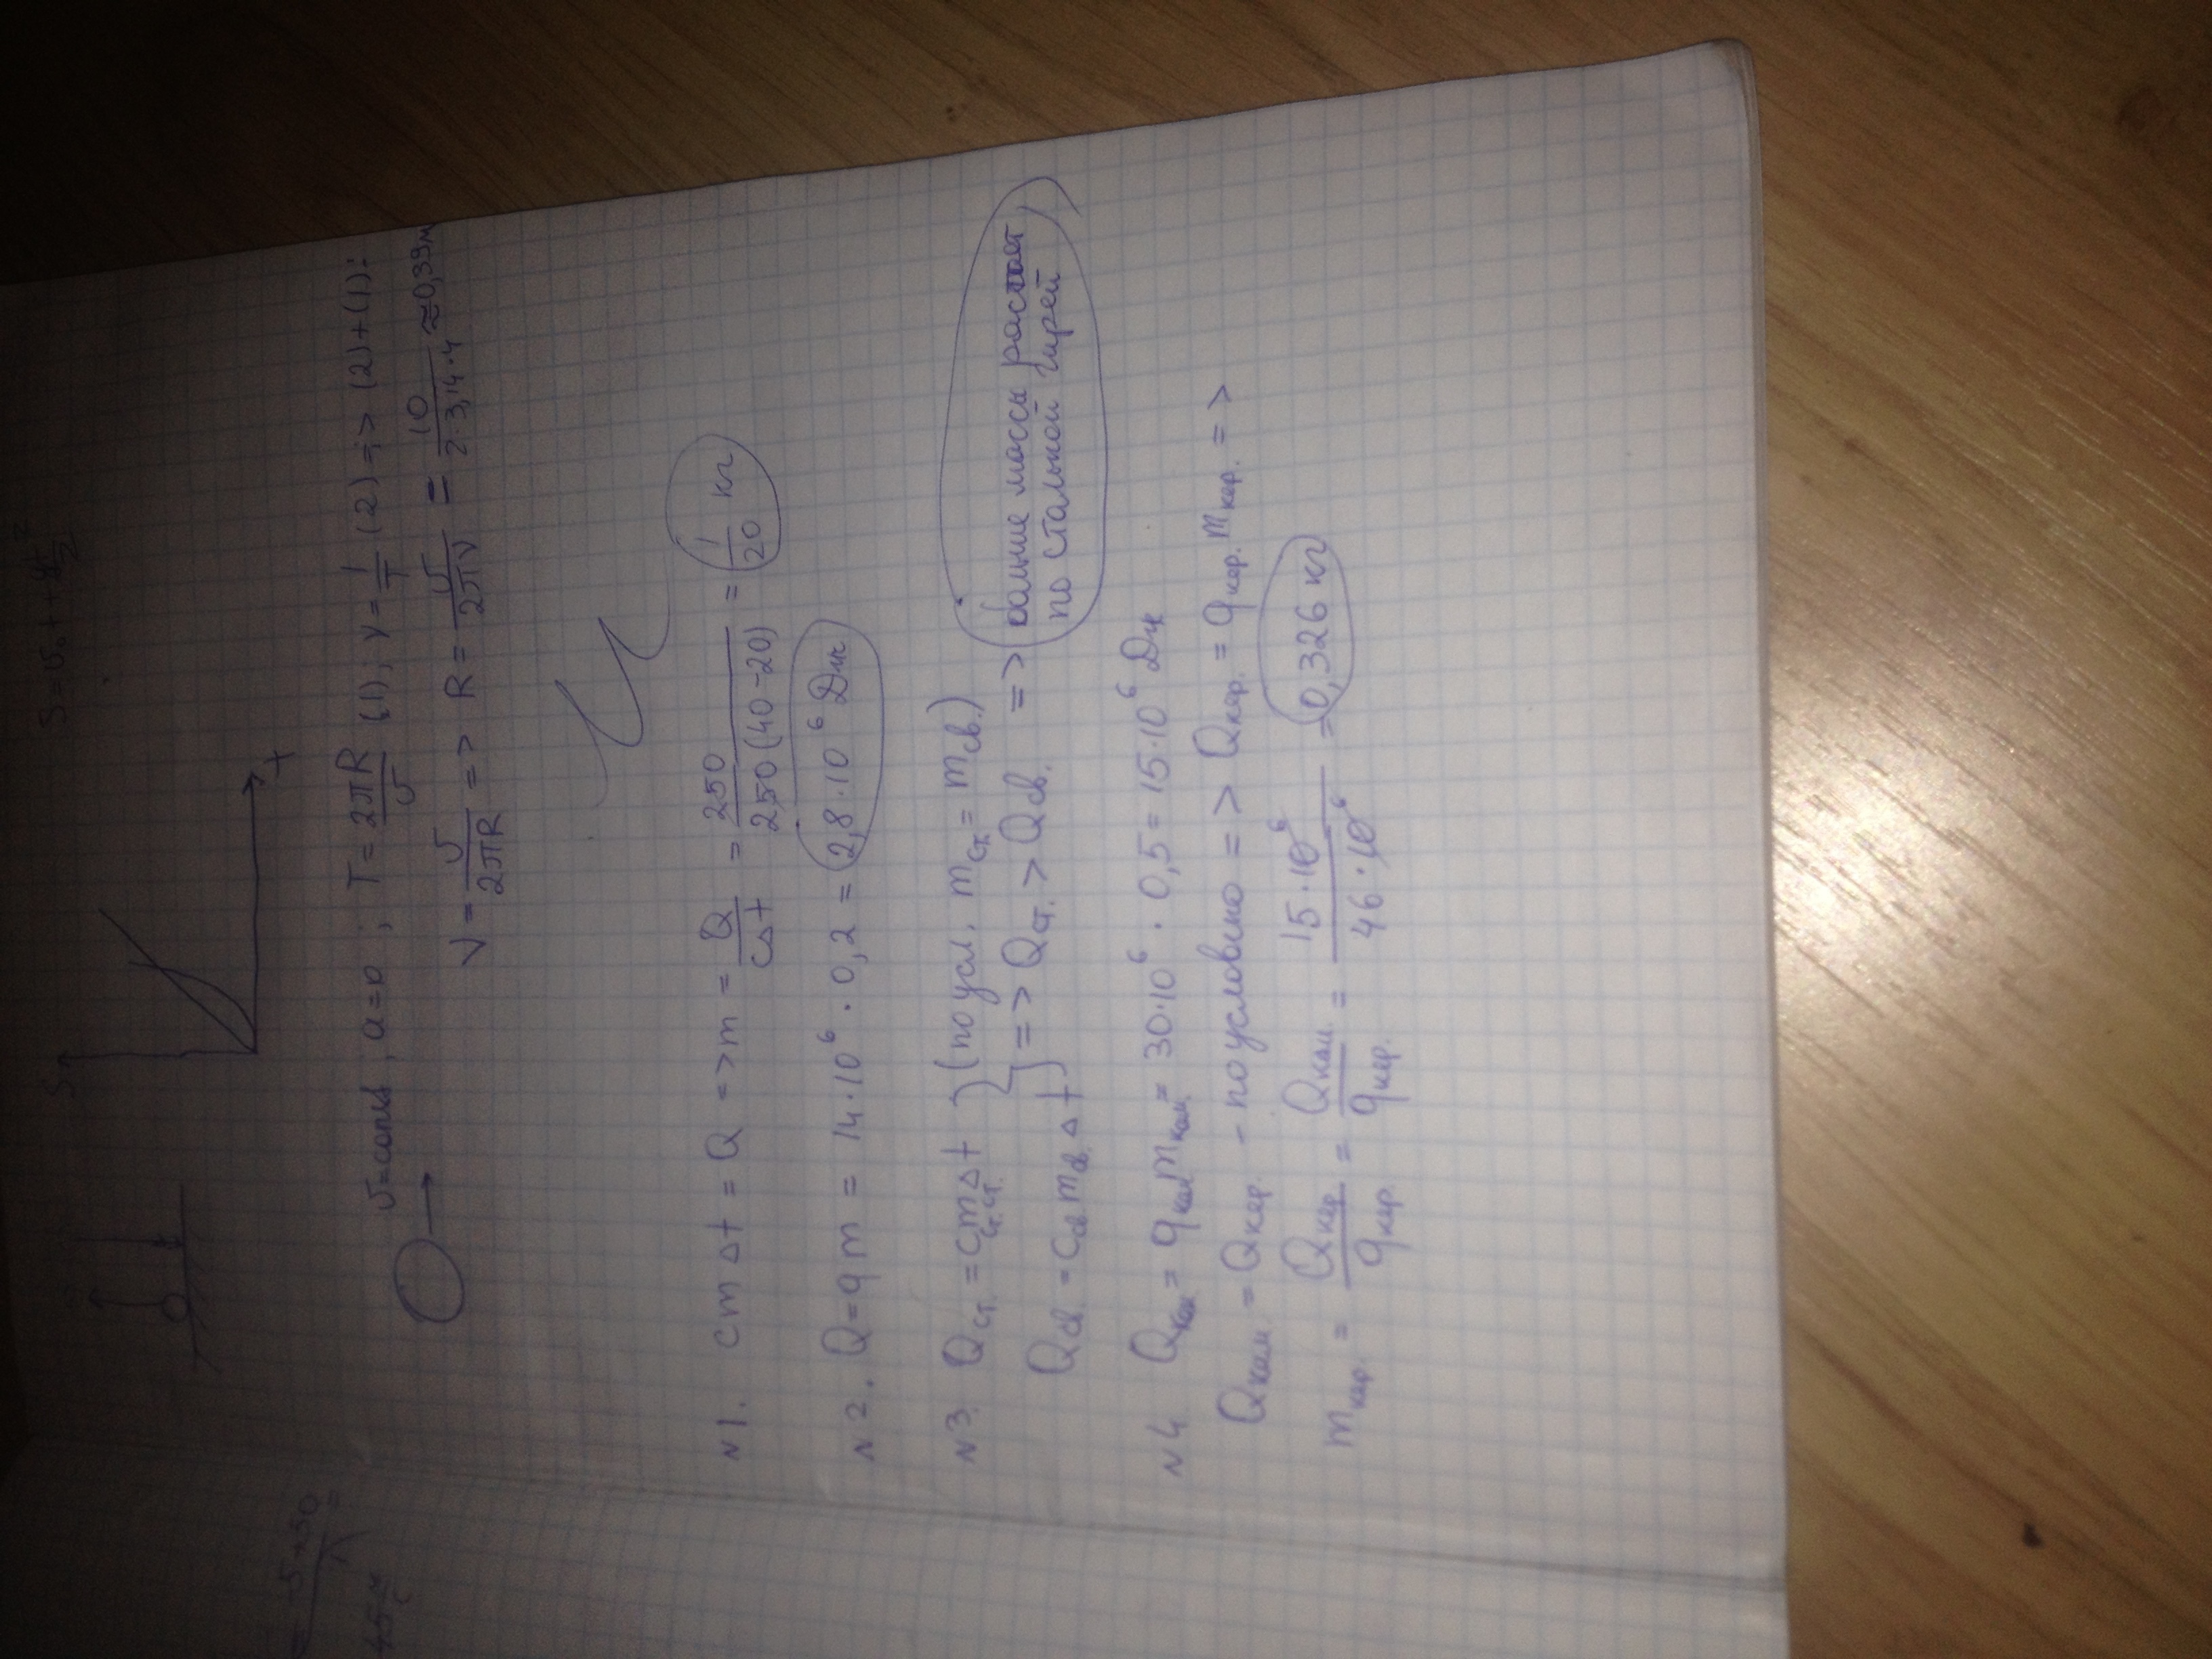 S
t
υ=const, a=0; T = 2πR/υ (1); ν = 1/T (2) => (2)+(1):
ν = υ/2πR => R = υ/2πν = 10/2·3,14·4 ≈ 0,39м
N1. cmΔt = Q => m = Q/cΔt = 250/250(40-20) = 1/20 кг
N2. Q = qm = 14·10⁶ · 0,2 = 2,8·10⁶ Дж
N3. Qст. = cст. mст. Δt } (по усл. mст = mсв.)
Qсв. = cсв mсв. Δt } => Qст. > Qсв. => больше массы растает под стальной гирей
N4 Qкам = qкам mкам = 30·10⁶ · 0,5 = 15·10⁶ Дж
Qкам. = Qкер. - по условию => Qкер. = qкер. mкер. =>
mкер. = Qкер/qкер. = Qкам./qкер. = 15·10⁶/46·10⁶ = 0,326 кг